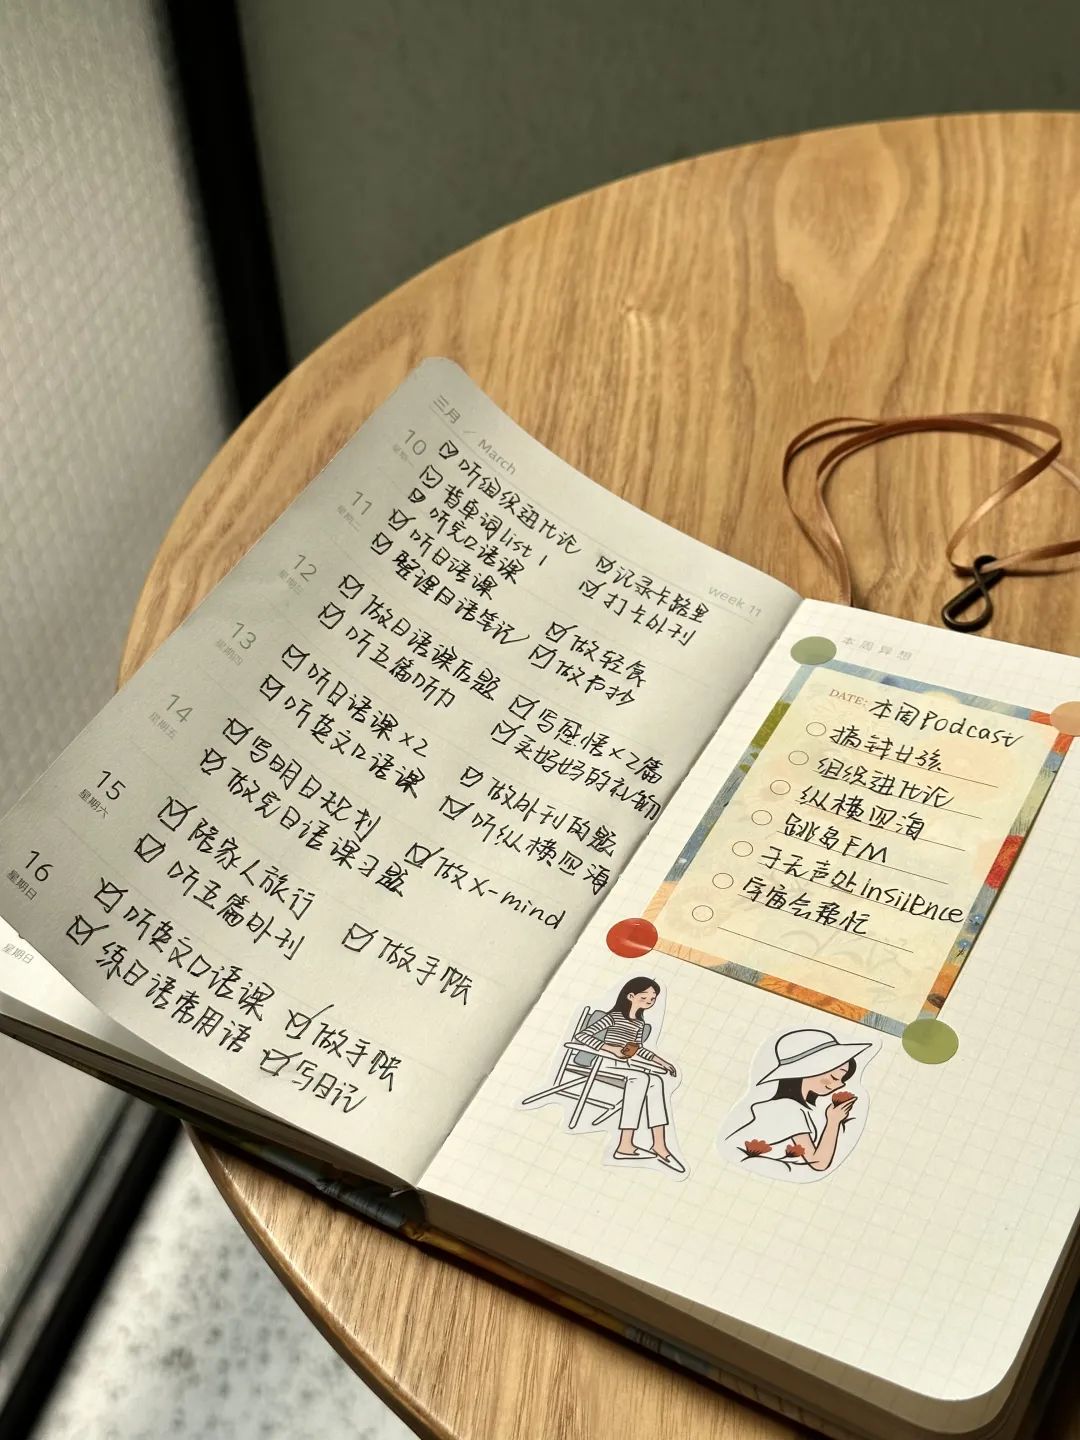 三月 / March
week 11
10
星期一
☑ 听组织进化论
☑ 背单词list 1
☑ 听完口语课
☑ 记录卡路里
☑ 打卡外刊
11
星期二
☑ 听日语课
☑ 整理日语笔记
☑ 做轻食
☑ 做书抄
12
☑ 做日语课后题
☑ 听五篇听力
☑ 写感悟×2篇
☑ 买妈妈的礼物
13
星期四
☑ 听日语课 ×2
☑ 听英文口语课
☑ 做外刊的题
☑ 听纵横四海
14
星期五
☑ 写明日规划
☑ 做完日语课习题
☑ 做X-mind
15
星期六
☑ 陪家人旅行
☑ 听五篇外刊
☑ 做手帐
16
星期日
☑ 听英文口语课
☑ 练日语常用语
☑ 做手帐
☑ 写日记
星期日
本周异想
DATE: 本周Podcast
搞钱女孩
组织进化论
纵横四海
跳岛FM
于无声处insilence
庠庙会帮忙